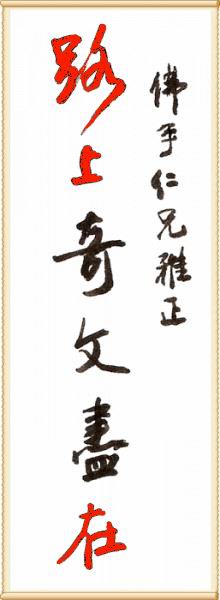 佛手仁兄雅正
路上奇文盡在